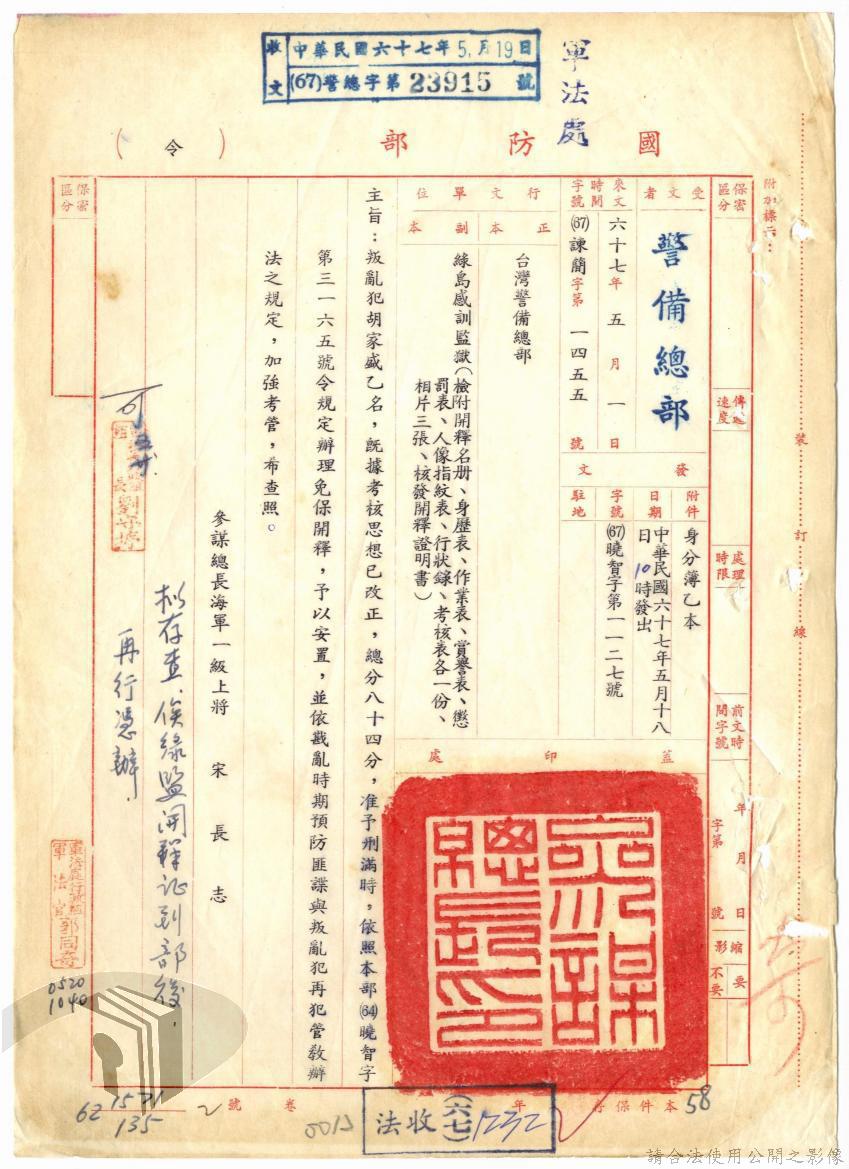 收文
中華民國六十七年5月19日
(67)警總字第23915號
軍法處
國防部
(令)
附加標示：
裝訂線
保密區分
傳遞速度
處理時限
前文時間字號
年月日
字第號
縮影
要
不要
受文者
警備總部
來文
時間
六十七年五月一日
字號
(67)諫簡字第一四五五號
發文
附件
身分簿乙本
日期
中華民國六十七年五月十八日10時發出
字號
(67)曉智字第一一二七號
駐地
行文單位
正本
台灣警備總部
副本
綠島感訓監獄（檢附開釋名册、身歷表、作業表、賞譽表、懲
罰表、人像指紋表、行狀錄、考核表各一份、
相片三張、核發開釋證明書）
蓋印處
主旨：叛亂犯胡家盛乙名，既據考核思想已改正，總分八十四分，准予刑滿時，依照本部(64)曉智字
第三一六五號令規定辦理免保開釋，予以安置，並依戡亂時期預防匪諜與叛亂犯再犯管教辦
法之規定，加強考管，希查照。
參謀總長海軍一級上將 宋長志
參謀總長印
擬存查、俟綠監開釋証到部後，
再行憑辦。
保密區分
軍法官郭同奇
0520
1040
本件保存
年
卷
號
58
法收(六七)1232
0015
62
1571
135
2
請合法使用公開之影像